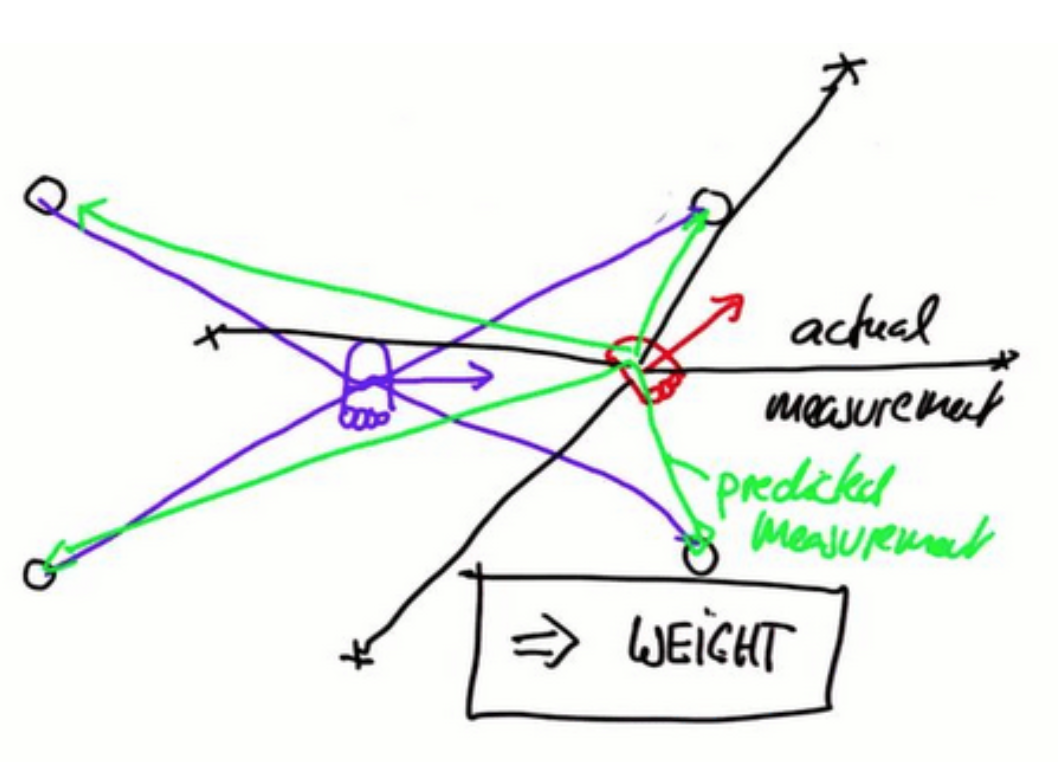 actual
measurement
predicted
measurement
⇒ WEIGHT